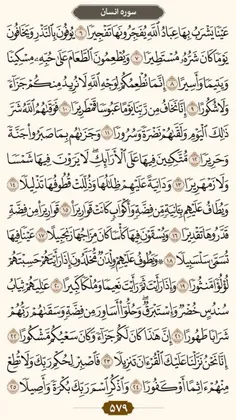 سوره انسان
عَيْنًا يَشْرَبُ بِهَا عِبَادُ اللَّهِ يُفَجِّرُونَهَا تَفْجِيرًا ﴿٦﴾ يُوفُونَ بِالنَّذْرِ وَيَخَافُونَ
يَوْمًا كَانَ شَرُّهُ مُسْتَطِيرًا ﴿٧﴾ وَيُطْعِمُونَ الطَّعَامَ عَلَىٰ حُبِّهِ مِسْكِينًا
وَيَتِيمًا وَأَسِيرًا ﴿٨﴾ إِنَّمَا نُطْعِمُكُمْ لِوَجْهِ اللَّهِ لَا نُرِيدُ مِنْكُمْ جَزَاءً
وَلَا شُكُورًا ﴿٩﴾ إِنَّا نَخَافُ مِنْ رَبِّنَا يَوْمًا عَبُوسًا قَمْطَرِيرًا ﴿١٠﴾ فَوَقَاهُمُ اللَّهُ شَرَّ
ذَٰلِكَ الْيَوْمِ وَلَقَّاهُمْ نَضْرَةً وَسُرُورًا ﴿١١﴾ وَجَزَاهُمْ بِمَا صَبَرُوا جَنَّةً
وَحَرِيرًا ﴿١٢﴾ مُتَّكِئِينَ فِيهَا عَلَى الْأَرَائِكِ لَا يَرَوْنَ فِيهَا شَمْسًا
وَلَا زَمْهَرِيرًا ﴿١٣﴾ وَدَانِيَةً عَلَيْهِمْ ظِلَالُهَا وَذُلِّلَتْ قُطُوفُهَا تَذْلِيلًا ﴿١٤﴾
وَيُطَافُ عَلَيْهِمْ بِآنِيَةٍ مِنْ فِضَّةٍ وَأَكْوَابٍ كَانَتْ قَوَارِيرَا ﴿١٥﴾ قَوَارِيرَ مِنْ فِضَّةٍ
قَدَّرُوهَا تَقْدِيرًا ﴿١٦﴾ وَيُسْقَوْنَ فِيهَا كَأْسًا كَانَ مِزَاجُهَا زَنْجَبِيلًا ﴿١٧﴾ عَيْنًا فِيهَا
تُسَمَّىٰ سَلْسَبِيلًا ﴿١٨﴾ وَيَطُوفُ عَلَيْهِمْ وِلْدَانٌ مُخَلَّدُونَ إِذَا رَأَيْتَهُمْ حَسِبْتَهُمْ
لُؤْلُؤًا مَنْثُورًا ﴿١٩﴾ وَإِذَا رَأَيْتَ ثَمَّ رَأَيْتَ نَعِيمًا وَمُلْكًا كَبِيرًا ﴿٢٠﴾ عَالِيَهُمْ ثِيَابُ
سُنْدُسٍ خُضْرٌ وَإِسْتَبْرَقٌ وَحُلُّوا أَسَاوِرَ مِنْ فِضَّةٍ وَسَقَاهُمْ رَبُّهُمْ
شَرَابًا طَهُورًا ﴿٢١﴾ إِنَّ هَٰذَا كَانَ لَكُمْ جَزَاءً وَكَانَ سَعْيُكُمْ مَشْكُورًا ﴿٢٢﴾
إِنَّا نَحْنُ نَزَّلْنَا عَلَيْكَ الْقُرْآنَ تَنْزِيلًا ﴿٢٣﴾ فَاصْبِرْ لِحُكْمِ رَبِّكَ وَلَا تُطِعْ
مِنْهُمْ آثِمًا أَوْ كَفُورًا ﴿٢٤﴾ وَاذْكُرِ اسْمَ رَبِّكَ بُكْرَةً وَأَصِيلًا ﴿٢٥﴾
٥٧٩